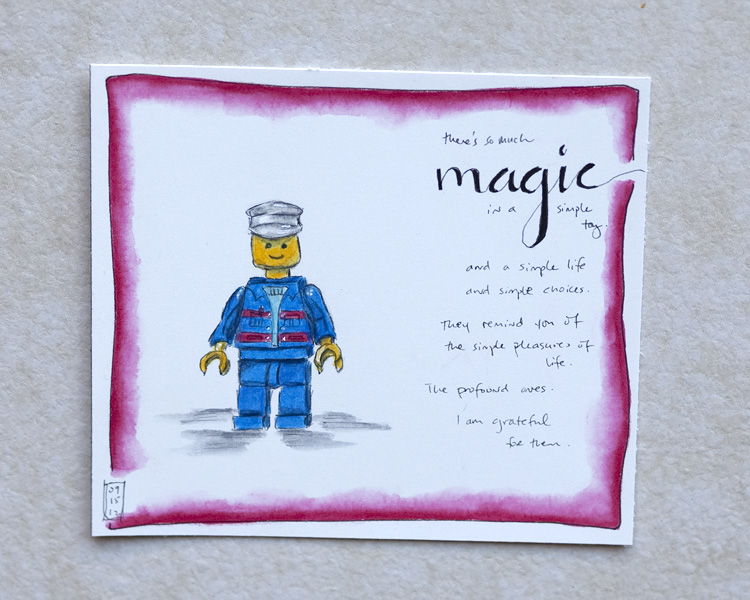 there's so much
magic
in a simple
toy.
and a simple life
and simple choices.
They remind you of
the simple pleasures of
life.
The profound ones.
I am grateful
for them.
09
15
12